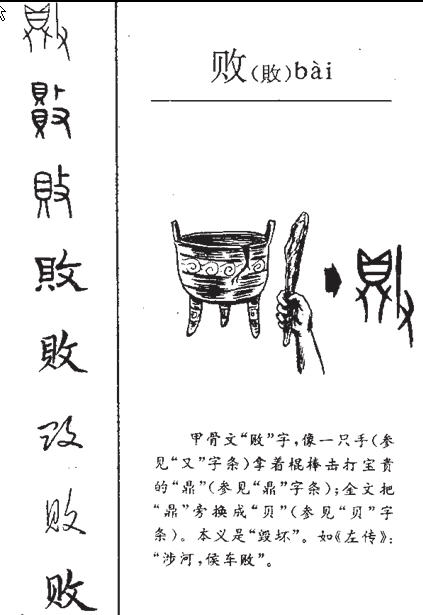 败(敗)bài
甲骨文“败”字,像一只手(参
见“又”字条)拿着棍棒击打宝贵
的“鼎”(参见“鼎”字条);金文把
“鼎”旁换成“贝”(参见“贝”字
条)。本义是“毁坏”。如《左传》:
“涉河,侯车败”。
敗
敗
败
败